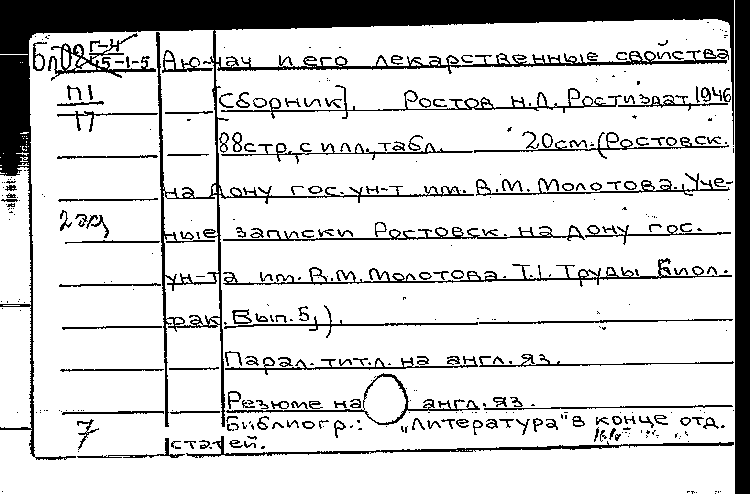 Аю-чач и его лекарственные свойства
П1
17
[Сборник]. Ростов н.Д., Ростиздат, 1946
88стр, с илл., табл. 20см. (Ростовск.
на Дону гос. ун-т им. В.М. Молотова. Уче-
2 экз
ные записки Ростовск. на Дону гос.
ун-та им. В.М. Молотова. Т.I. Труды Биол.
фак. Вып. 5,).
Парал. тит. л. на англ. яз.
Резюме на англ. яз.
Библиогр.: "Литература" в конце отд.
7
статей.